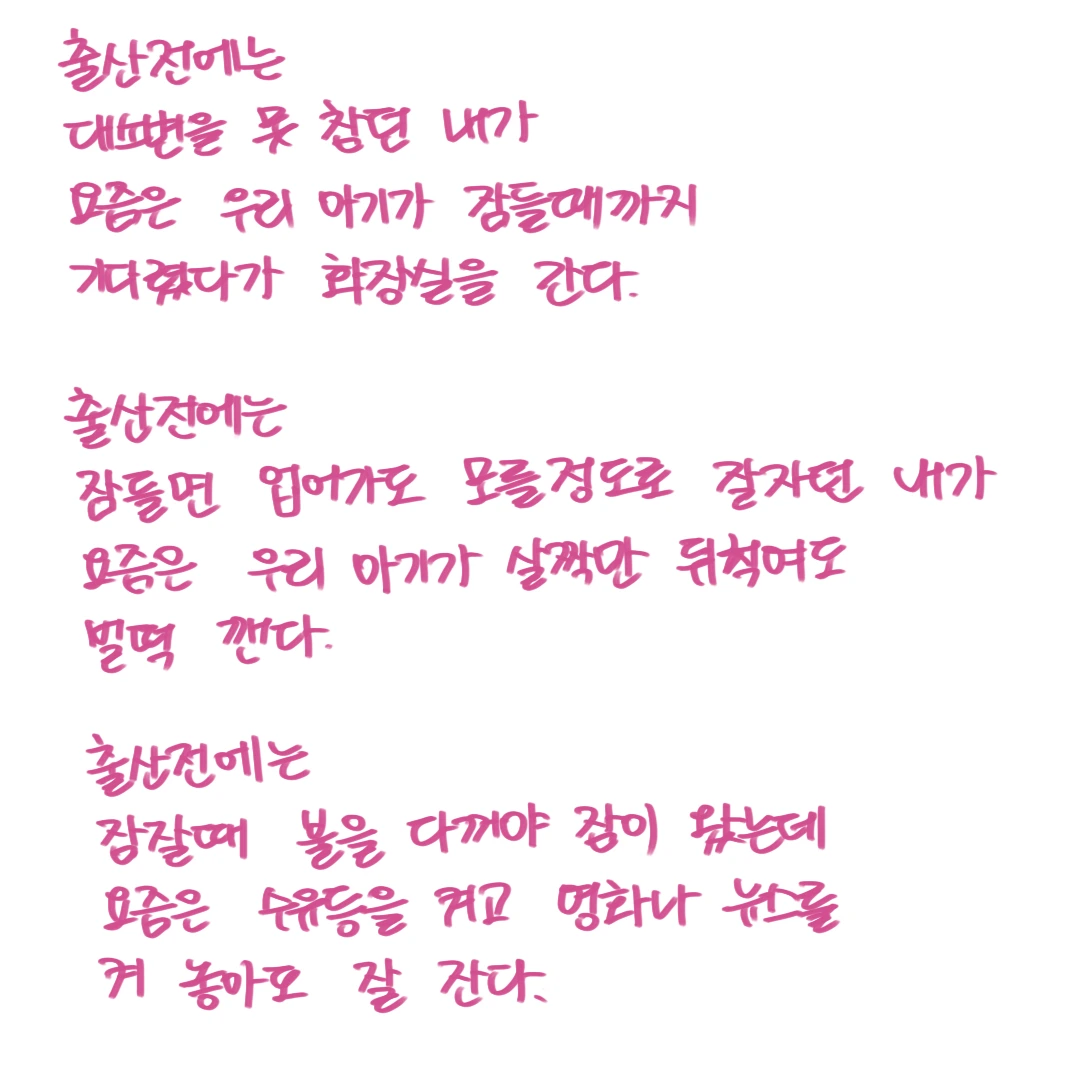 출산전에는
대소변을 못 참던 내가
요즘은 우리 아기가 잠들때까지
기다렸다가 화장실을 간다.
출산전에는
잠들면 업어가도 모를정도로 잘자던 내가
요즘은 우리 아기가 살짝만 뒤척여도
벌떡 깬다.
출산전에는
잠잘때 불을 다꺼야 잠이 왔는데
요즘은 수유등을 켜고 영화나 뉴스를
켜 놓아도 잘 잔다.